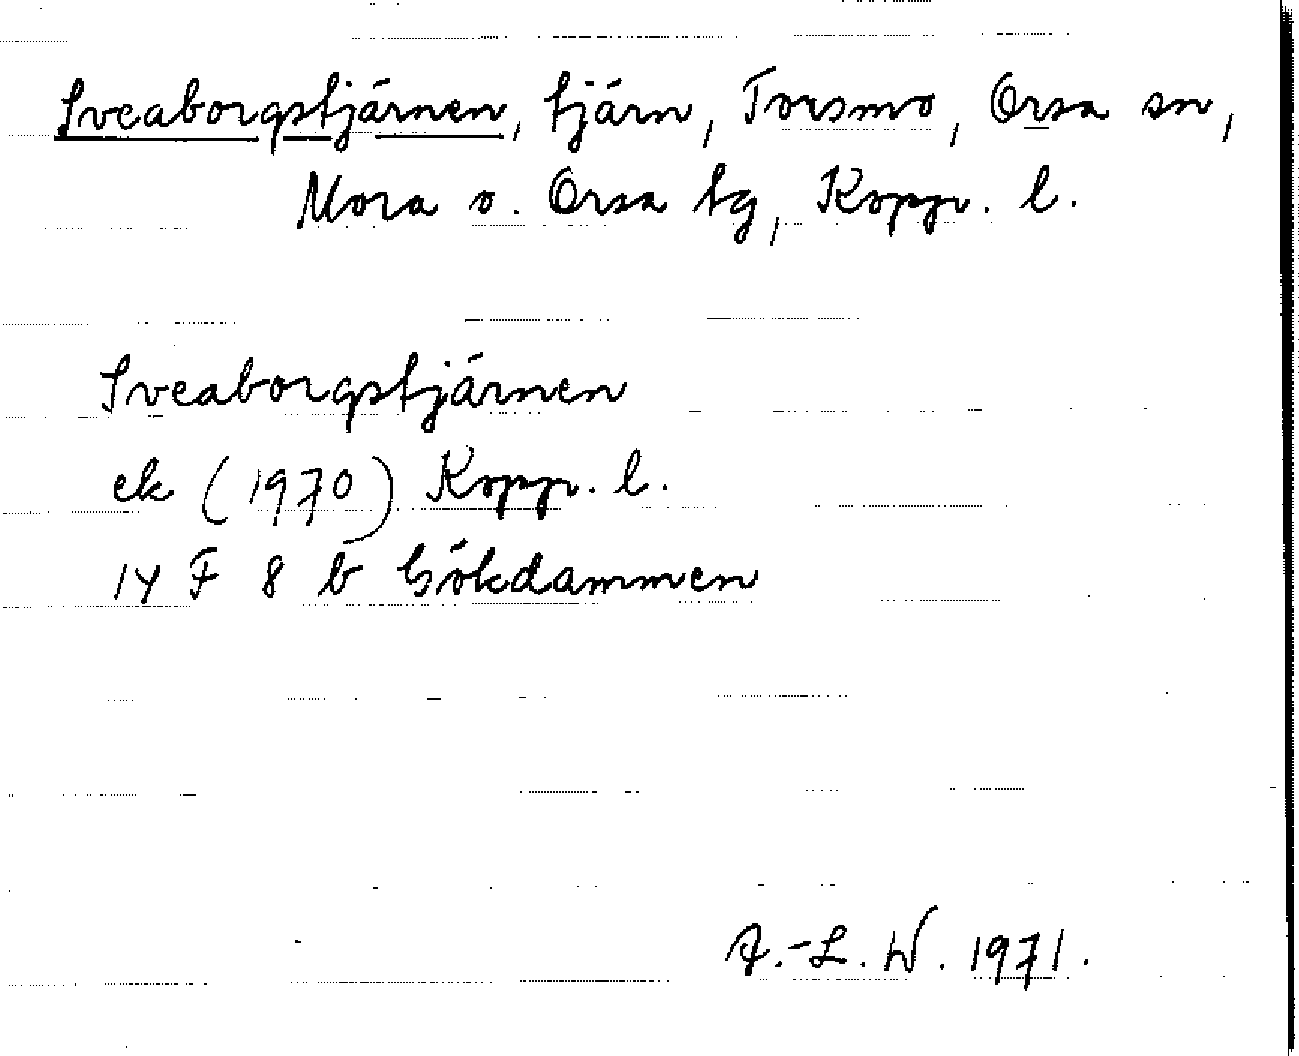 Sveaborgstjärnen, tjärn, Torsmo, Orsa sn,
Mora o. Orsa tg, Koppr. l.
Sveaborgstjärnen
ek (1970) Koppr. l.
14 F 8 b Gökdammen
A.-L. W. 1971.